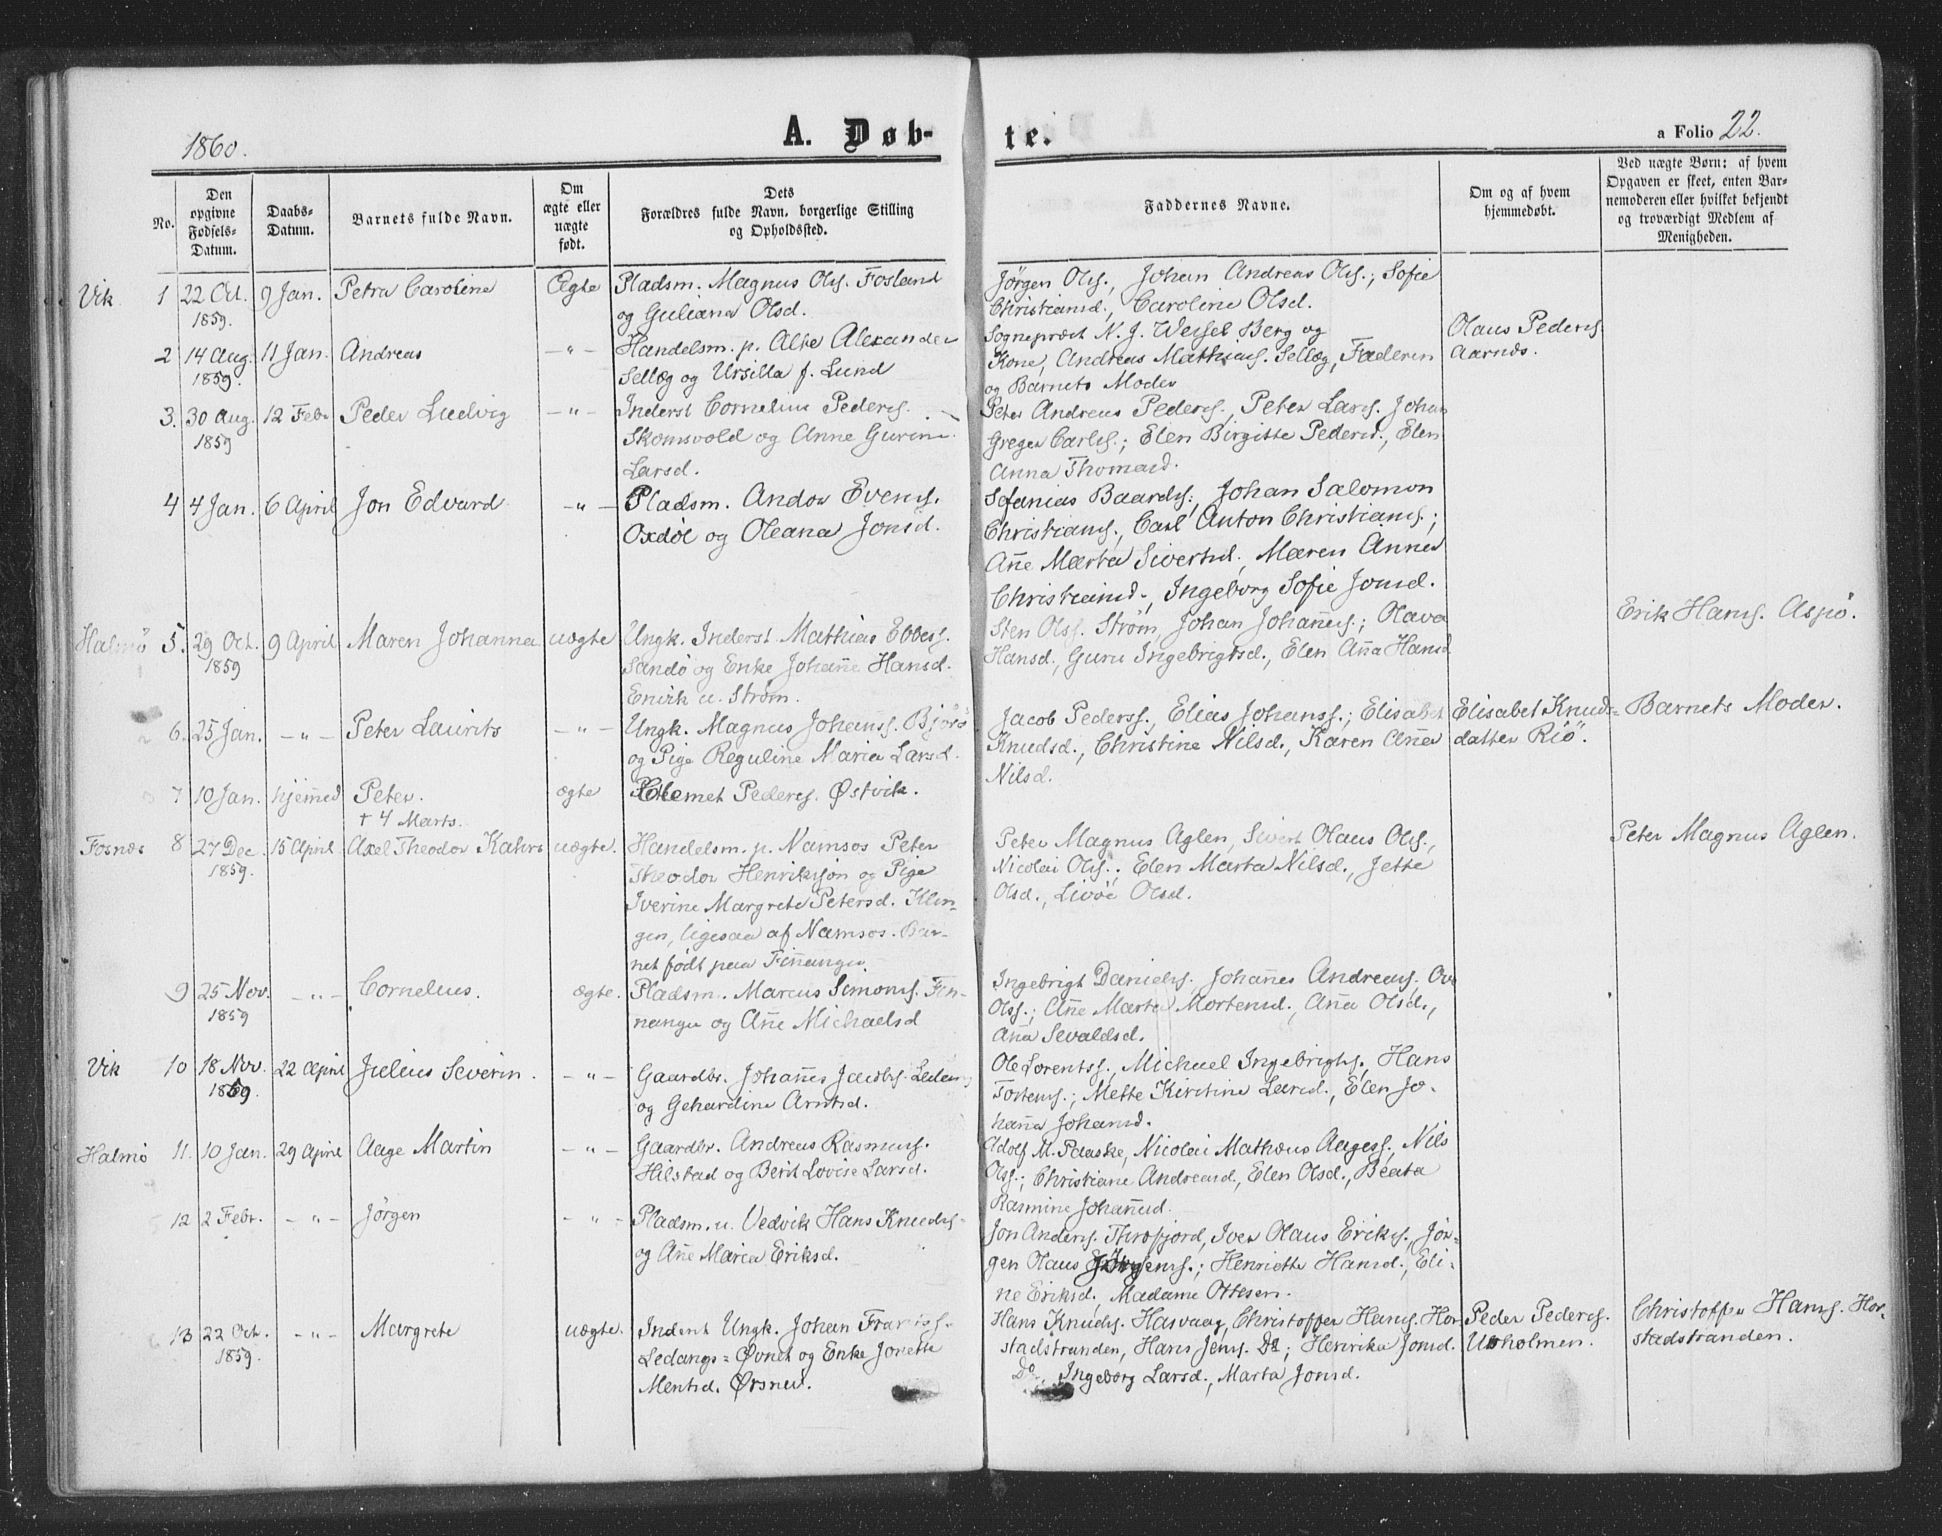 1860.
A. Døb-
te.
a Folio 22.
No.
Den opgivne Fødsels-Datum.
Daabs-Datum.
Barnets fulde Navn.
Om ægte eller uægte født.
Dets Forældres fulde Navn, borgerlige Stilling og Opholdssted.
Faddernes Navne.
Om og af hvem hjemmedøbt.
Ved uægte Børn: af hvem Opgaven er skeet, enten Barnemoderen eller hvilket bekjendt og troværdigt Medlem af Menigheden.
Vik 1 22 Oct. 9 Jan. Petra Caroline Ægte Pladsm. Magnus Ols. Fosland Jörgen Ols., Johan Andreas Ols.; Sofie
1859. og Guliana Olsd. Christiansd., Caroline Olsd.
2 14 Aug. 11 Jan. Andreas -"- Handelsm. p. Alte Alexander Sogneprest N. J. Wessel Berg og Olaus Peders.
1859. Selläg og Ursilla f. Lund Kone, Andreas Mathias. Selläg, Faderen Aarnäs.
og Barnets Moder
3. 30 Aug. 12 Febr Peder Ludvig -"- Inderst Cornelius Peders. Peter Andreas Peders., Peter Lars. Johan
1859 Skomsvold og Anne Gurine Greger Carls.; Elen Birgitte Pedersd., Elen
Larsd. Anna Thomasd.
4 4 Jan. 6 April Jon Edvard -"- Pladsm. Andor Evens. Sefanias Baards., Johan Salomon
Oxdöl og Oleana Jonsd. Christians., Carl Anton Christians.;
Ane Marta Sivertsd., Maren Anna
Christiansd., Ingeborg Sofie Jonsd.
Halmö 5. 29 Oct. 9 April Maren Johanna uægte Ungk. Inderst Mathias Ebbess. Sten Olss. Ström, Johan Johañess.; Olava Erik Hans. Aspö.
1859 Sandö og Enke Johañe Hansd. Hansd., Guru Ingebrigtsd., Elen Aña Hansd
Envik u. Ström.
6. 25 Jan. -"- Peter Laurits -"- Ungk. Magnus Johans. Björö Jacob Pederss., Elias Johanss.; Elisabet Elisabet Knuds- Barnets Moder.
og Pige Reguline Maria Larsd. Knudsd., Christine Nilsd., Karen Aña datter Riö.
Nilsd.
7 10 Jan. hjemed Peter. ægte Clemet Peders. Østvik.
+ 4 Marts.
Fosnæs 8 27 Dec. 15 April Axel Theodor Kahrs uægte. Handelsm. p. Namsos Peter Peter Magnus Aglen, Sivert Olaus Ols., Peter Magnus Aglen.
1859. Theodor Henriksön og Pige Nicolai Ols.; Elen Marta Nilsd., Jette
Iverine Margrete Petersd. Klin- Olsd., Livöe Olsd.
gen, ligesaa af Namsos. Bar-
net födt paa Fiñanger
9 25 Nov. -"- Cornelius. ægte. Pladsm. Marcus Simons. Fin- Ingebrigt Daniels. Johañes Andreas., Ove
1859 nanger og Añe Michaelsd Olss.; Añe Marta Mortensd., Aña Olsd.,
Aña Sevaldsd.
Vik 10 18 Nov. 22 April Julius Severin. -"- Gaardbr. Johañes Jacobs. Ledang Ole Lorentss., Michael Ingebrigts., Hans
1859. og Gehardine Arntsd. Tostens.; Mette Kirstine Larsd., Elen Jo-
haña Johansd.
Halmö 11. 10 Jan. 29 April Aage Martin -"- Gaardbr. Andreas Rasmus. Adolf M. Paaske, Nicolai Mathæus Aagess., Nils
Hilstad og Berit Lovise Larsd. Olss.; Christiane Andreasd., Elen Olsd., Beata
Rasmine Johañesd.
12 2 Febr. -"- Jörgen -"- Pladsm. u. Vedvik Hans Knuds. Jon Anders. Throfjord, Iver Olaus Eriks., Jör-
og Añe Maria Eriksd. gen Olaus Jörgens.; Henriette Hansd., Eli-
ne Eriksd., Madame Ottesen.
13 22 Oct. -"- Margrete uægte. Inderst Ungk. Johan Franciss. Hans Knuds. Hasvaag, Christoffer Hans. Hor- Peder Peders. Christoffer Hans. Hor-
1859. Ledangs= Øvnet og Enke Jonette stadstranden, Hans Jens. Do; Henrika Jonsd. Utholmen. stadstranden.
Mentsd. Ørsnes. Do., Ingeborg Larsd., Marta Jonsd.